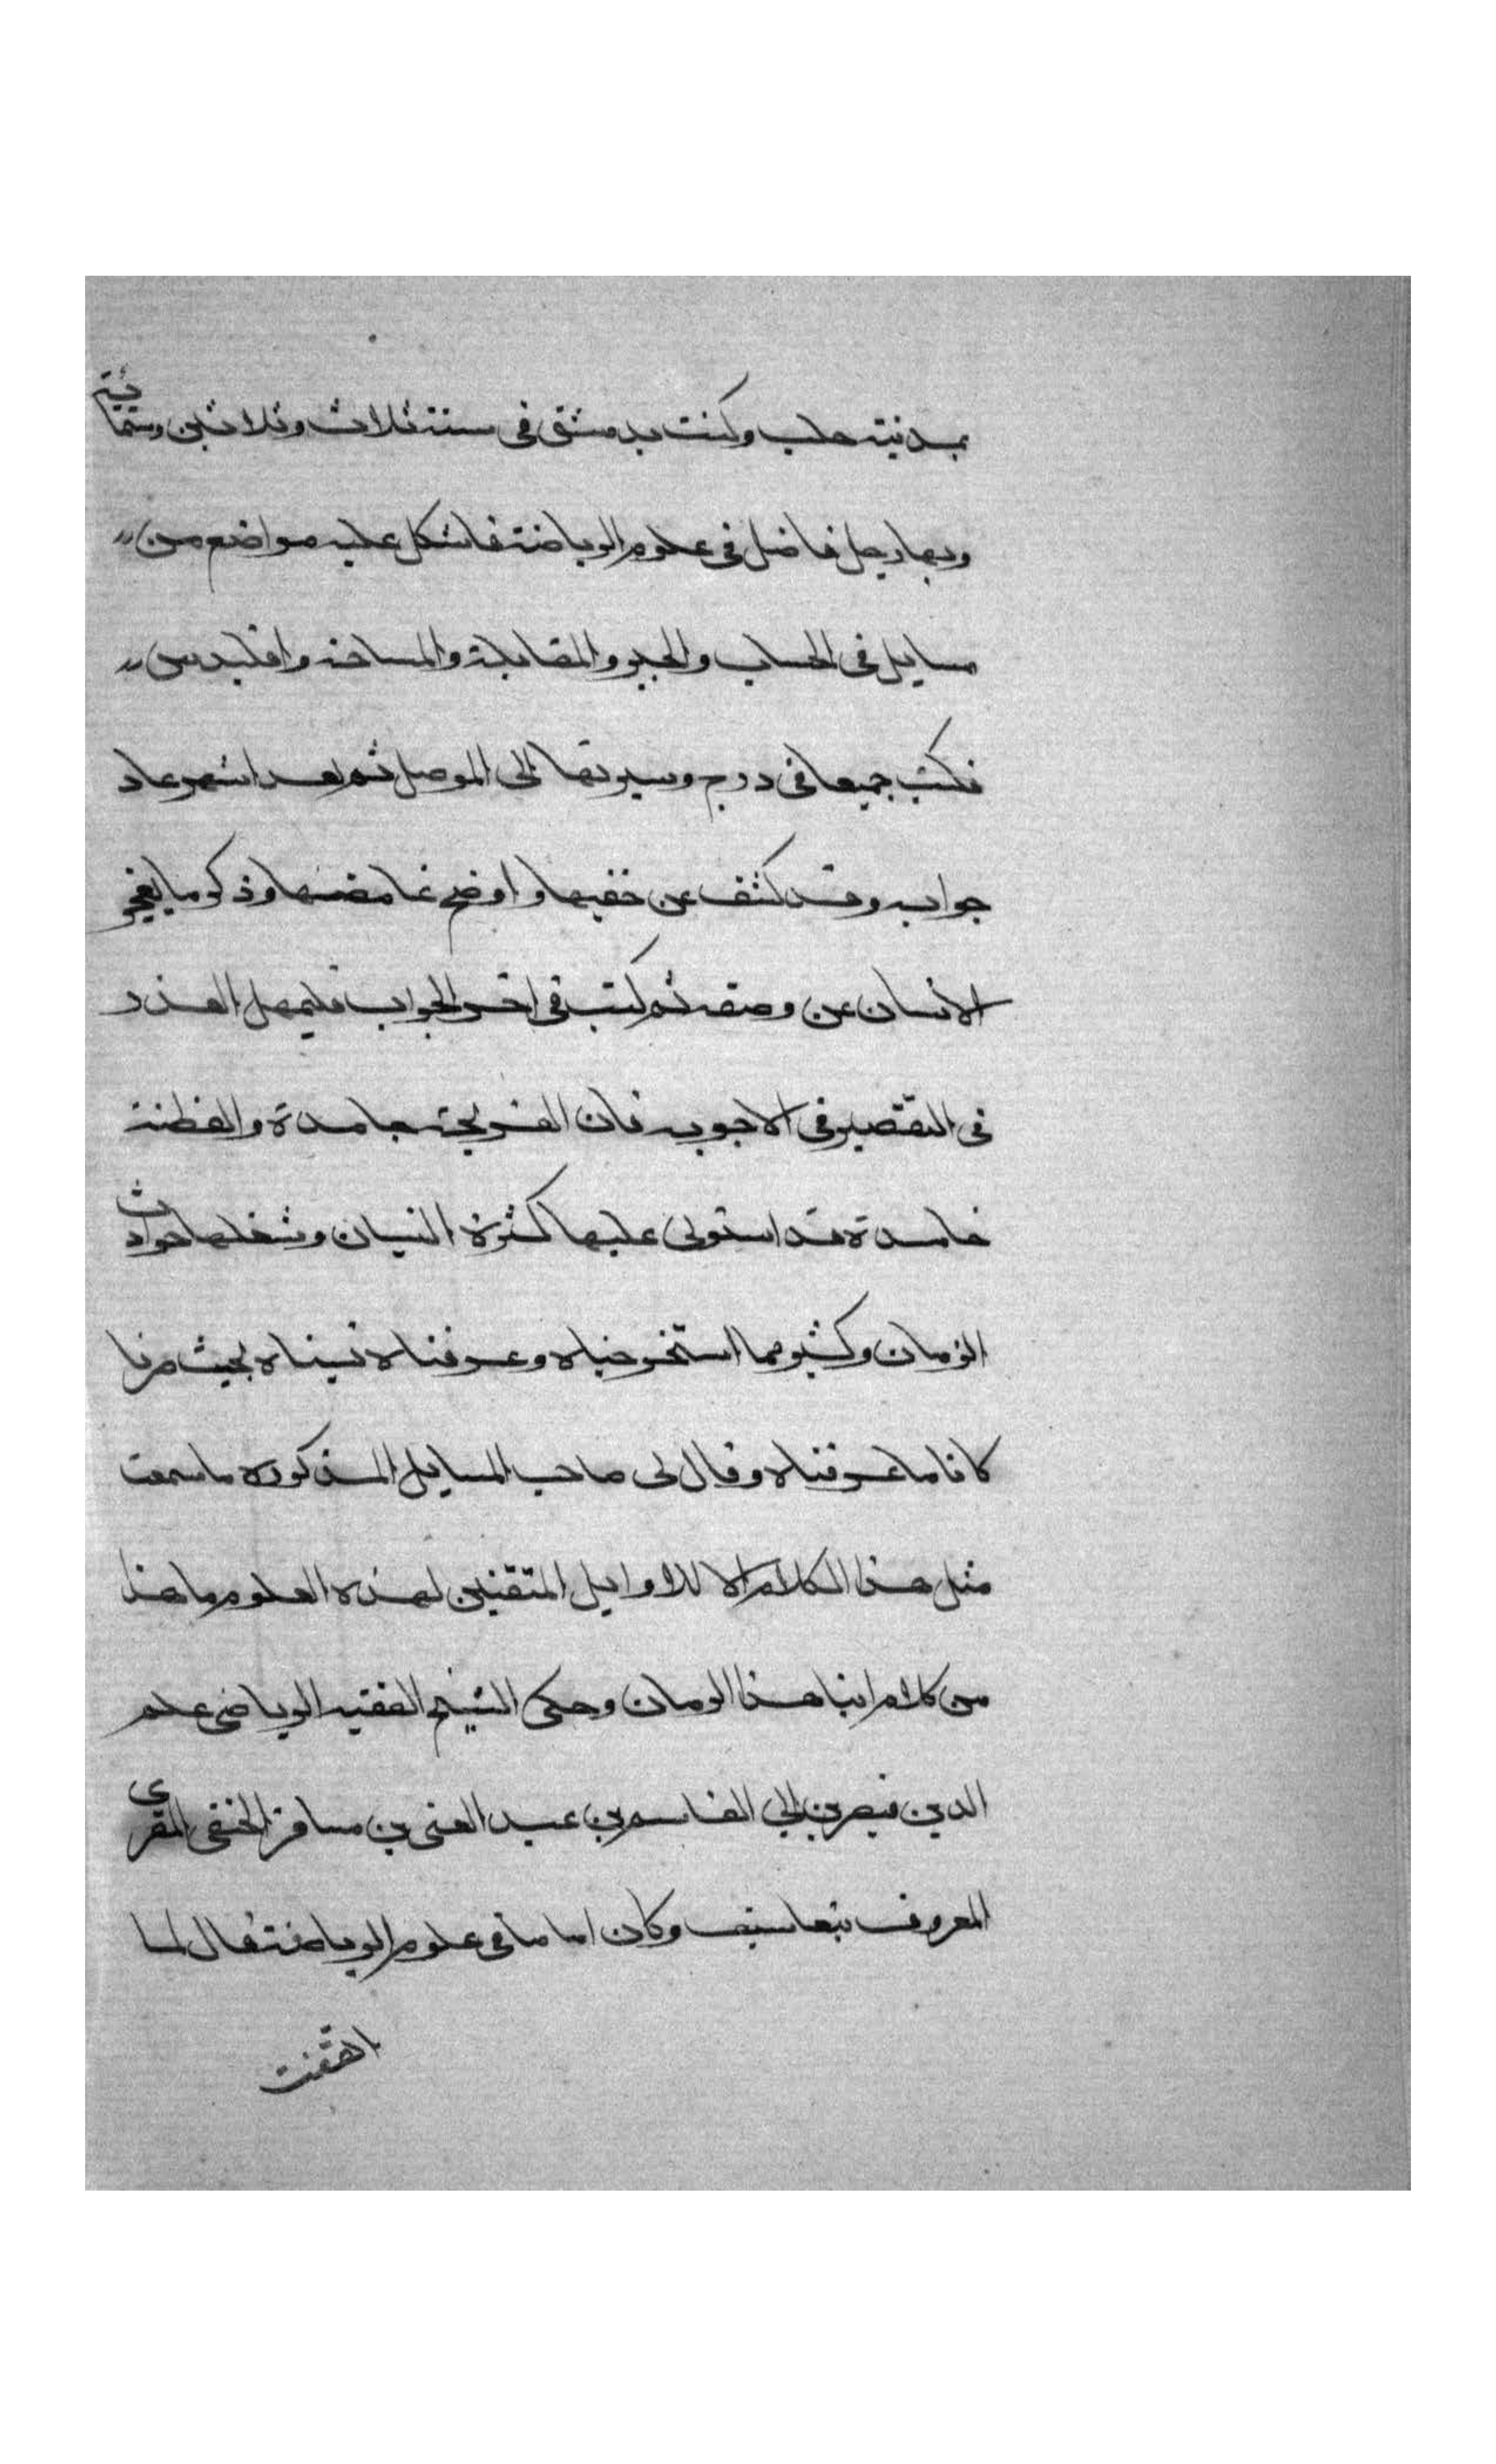 بمدينة حلب وكنت بدمشق فى سنة ثلاث وثلاثين وستمائة
وبها رجل فاضل فى علوم الرياضة فاشكل عليه مواضع من
مسايل فى الحساب والجبر والمقابلة والمساحة واقليدس
فكتب جميعها فى درج وسيرتها الى الموصل ثم بعد اشهر عاد
جوابه وقد كشف عن خفيها واوضح غامضها وذكر ما يعجز
الانسان عن وصفه ثم كتب فى اخر الجواب فليمهد العذر
فى التقصير فى الاجوبه فان القريحة جامدة والفطنة
خامدة قد استولى عليها كثرة النسيان وشغلها حوادث
الزمان وكثير مما استخرجناه وعرفناه نسيناه بحيث صرنا
كانا ما عرفناه وقال لى صاحب المسايل المذكوره ما سمعت
مثل هذا الكلام الا للاوايل المتقنين لهذه العلوم ما هذا
من كلام ابنا هذا الزمان وحكى الشيخ الفقيه الرياضى علم
الدين قيصر بن ابي القاسم بن عبد الغنى بن مسافر الحنفى المقرى
المعروف بتعاسيف وكان اماما فى علوم الرياضة قال لما